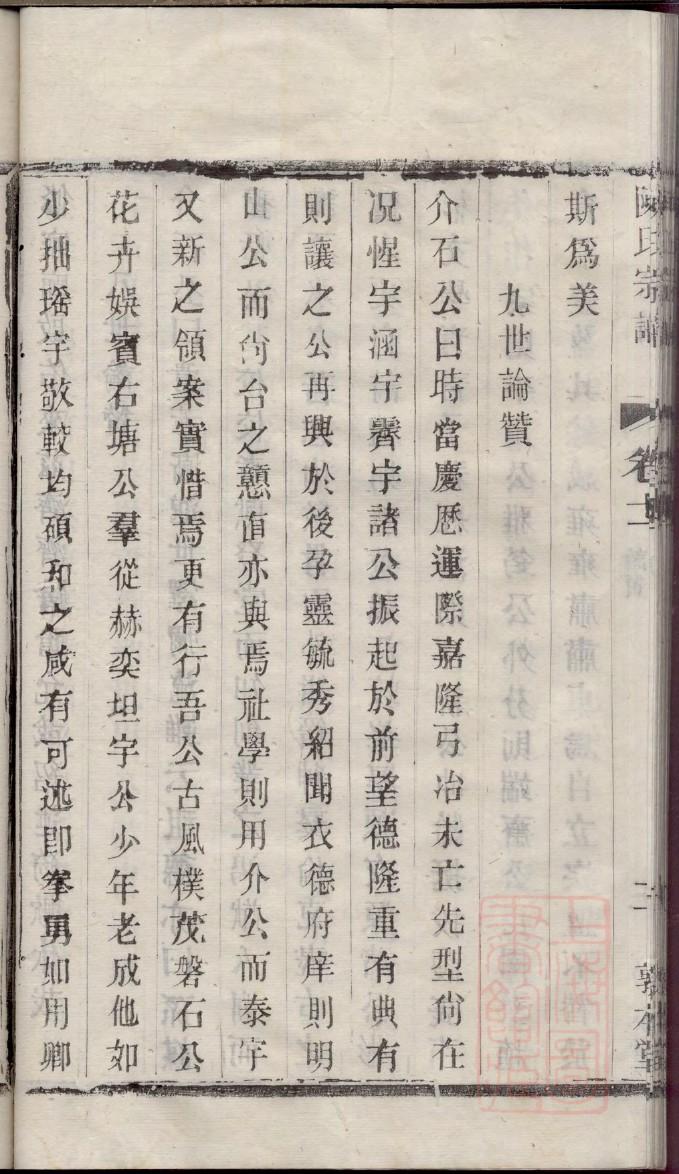 斯爲美
九世論贊
介石公曰時當慶厯運際嘉隆弓冶未亡先型尙在
况惺宇涵宇霽宇諸公振起於前望德隆重有典有
則讓之公再興於後孕靈毓秀紹聞衣德府庠則明
山公而尙台之戇直亦與焉社學則用介公而泰宇
又新之領案實惜焉更有行吾公古風樸茂磐石公
花卉娛賓右塘公羣從赫奕坦宇公少年老成他如
少拙瑤宇敬較均碩和之咸有可述卽拳勇如用卿
氏宗譜
卷
二
敦本堂